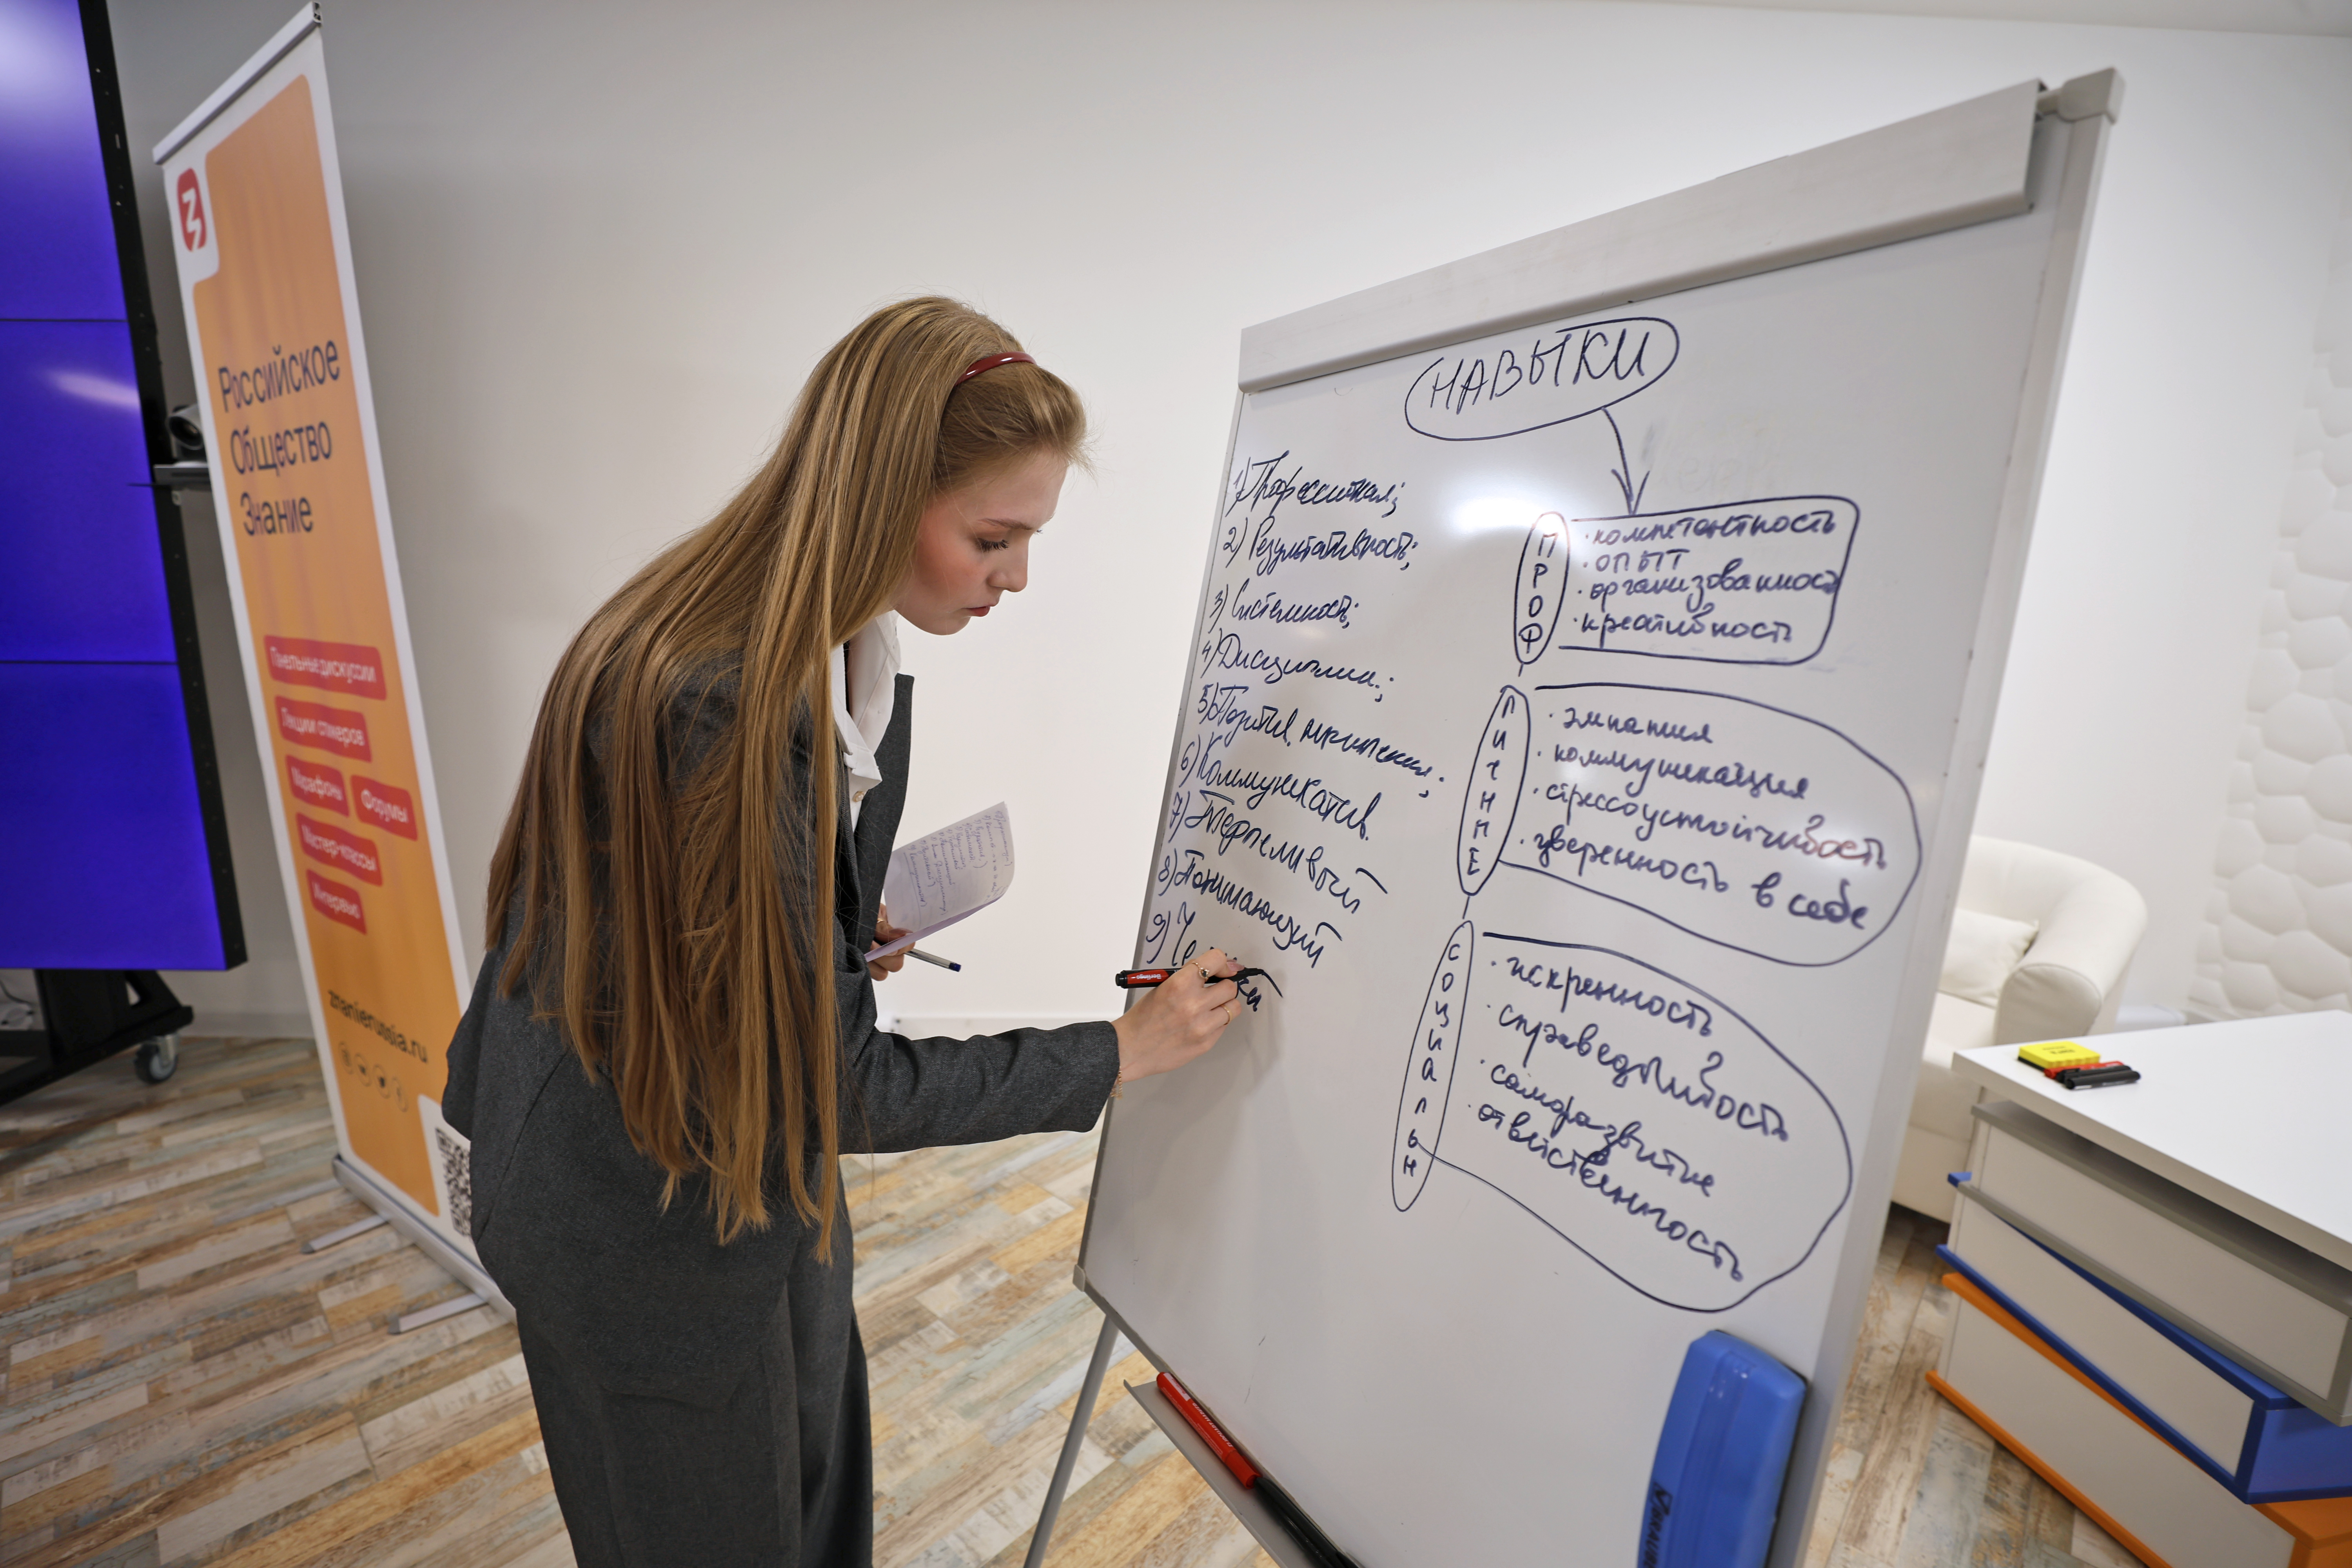 Российское
Общество
Знание
Панельные дискуссии
Лекции спикеров
Марафоны
Форумы
Мастер-классы
Интервью
znanierussia.ru
НАВЫКИ
1) Профессионал;
2) Результативность;
3) Системность;
4) Дисциплин.;
5) Позитив. мышления;
6) Коммуникатив.
7) Терпеливый
8) Понимающий
9) Че
ПРОФ
· компетентность
· опыт
· организованность
· креативность
ЛИЧНЫЕ
· эмпатия
· коммуникация
· стрессоустойчивость
· уверенность в себе
СОЦИАЛЬН
· искренность
· справедливость
· саморазвитие
· ответственность